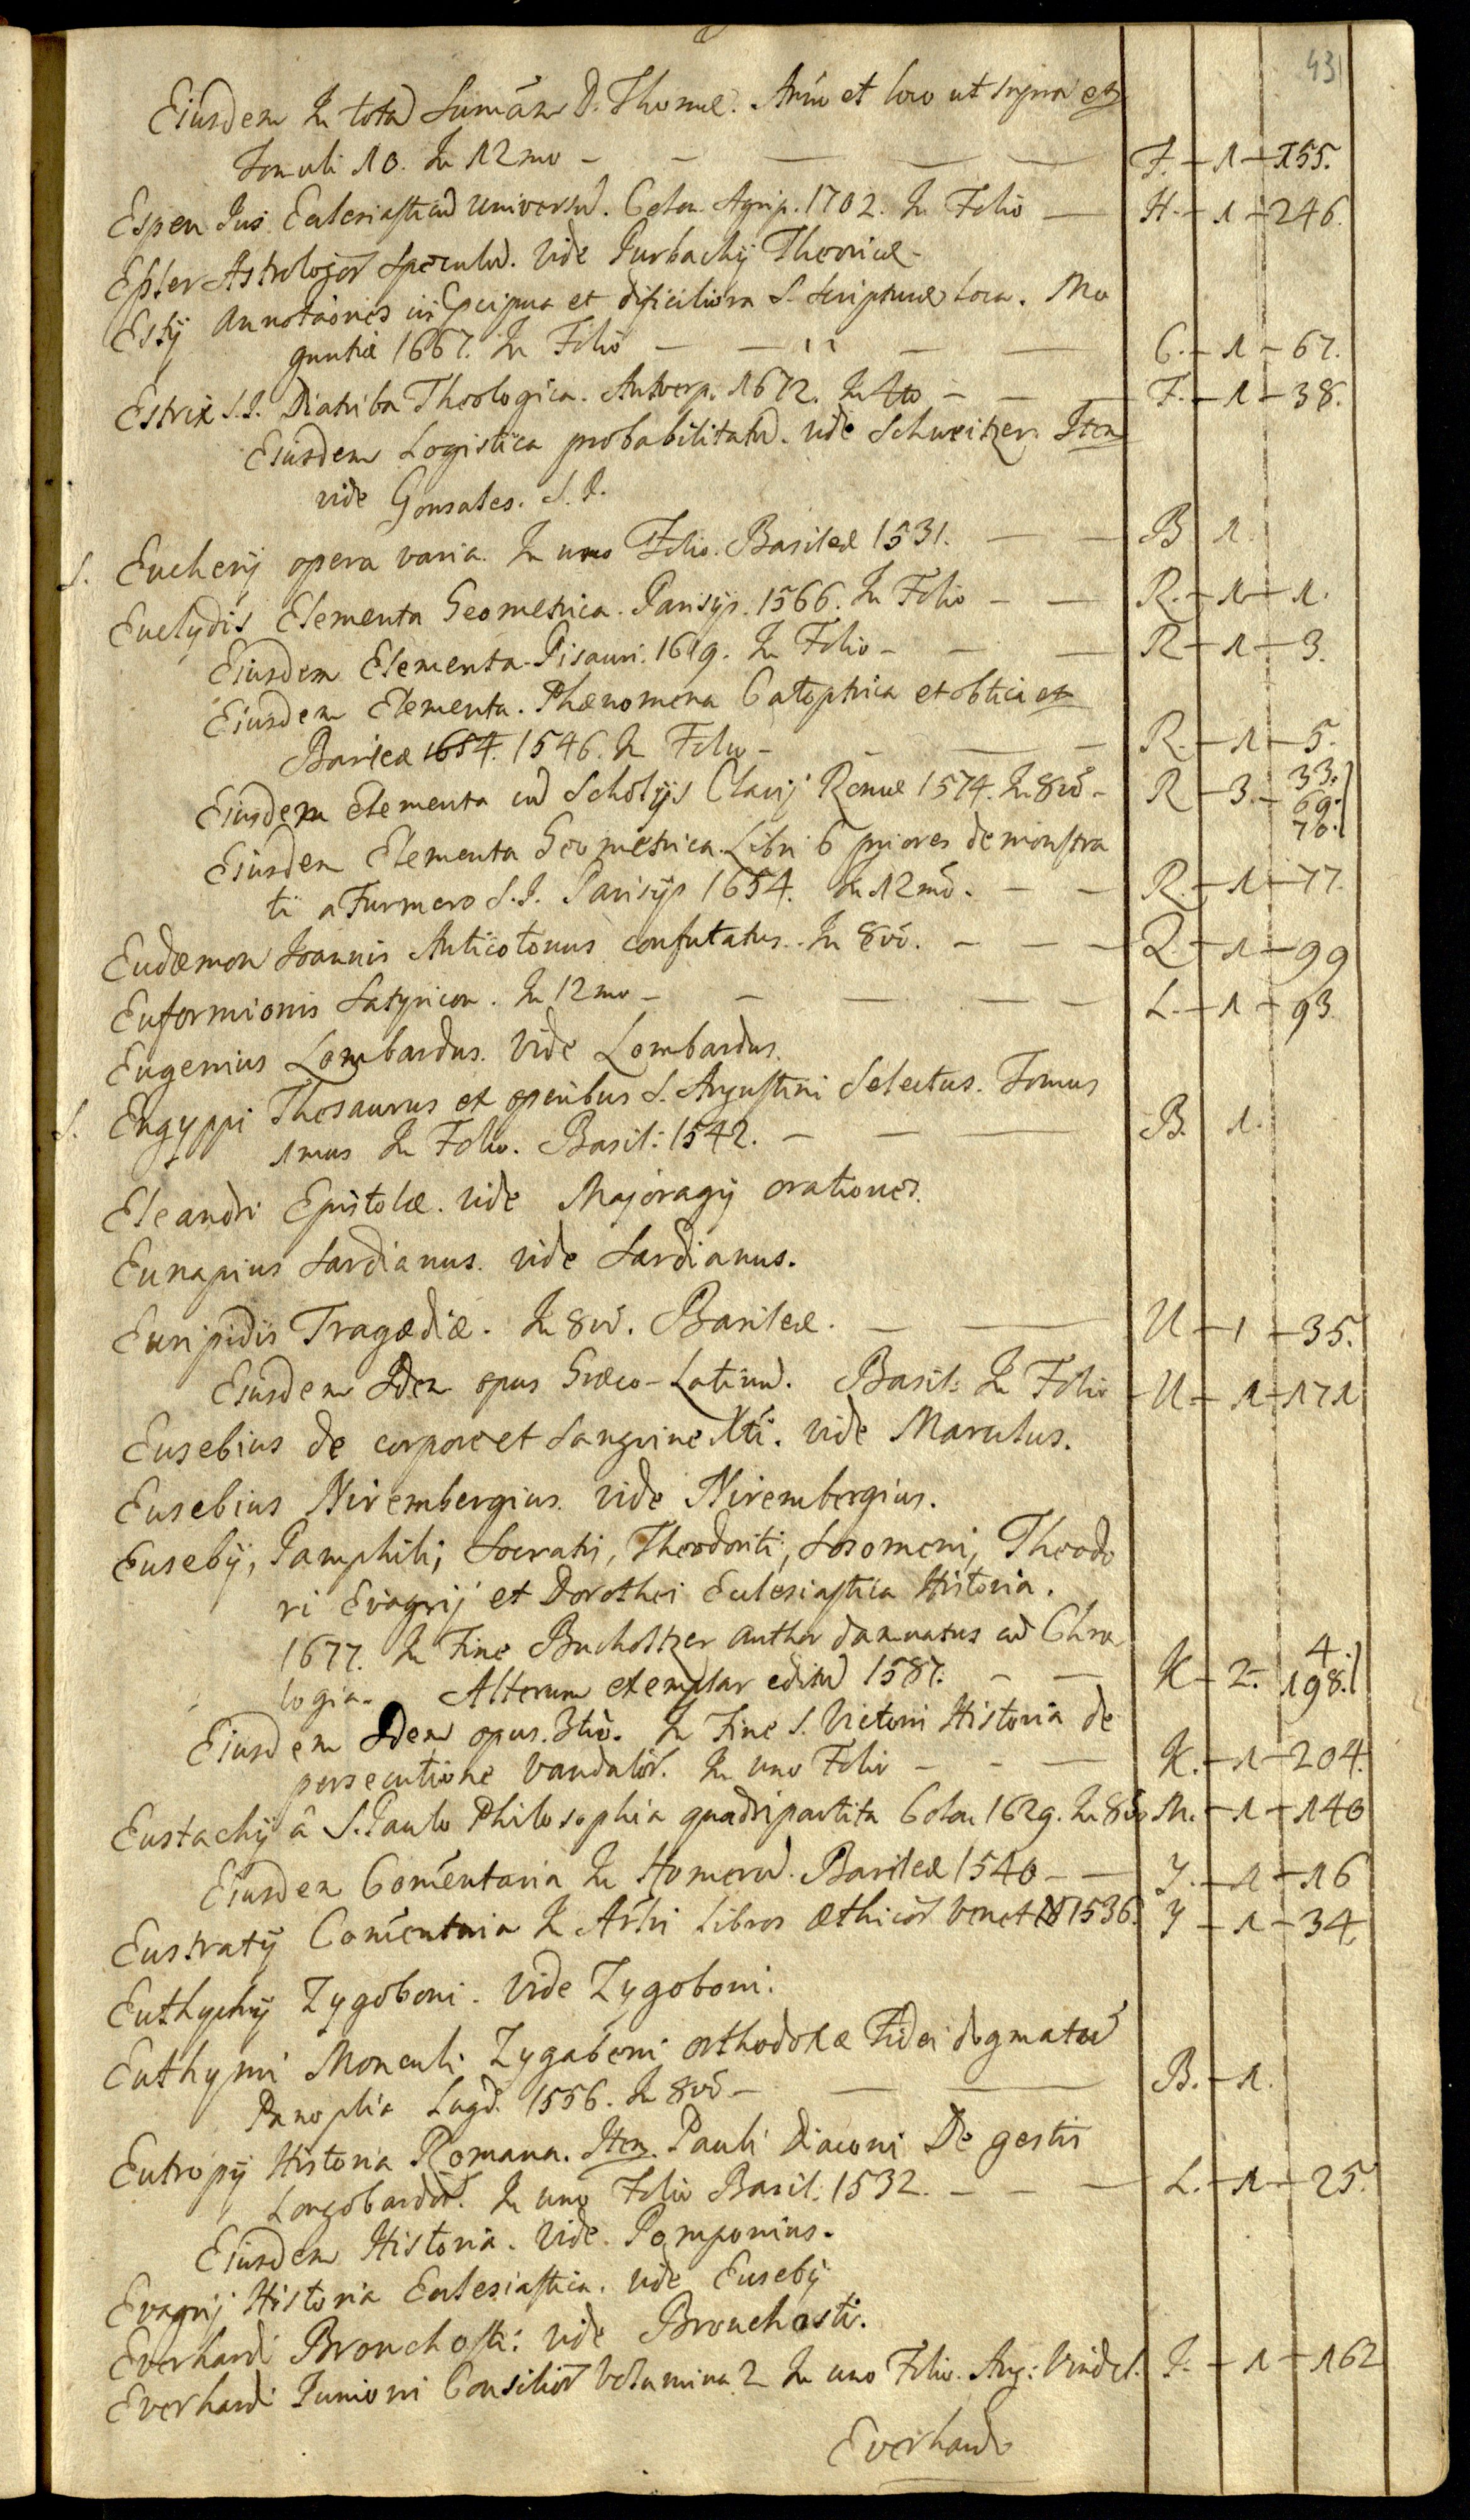 431
Eiusdem In totã Sum̃am D. Thomæ. Año et loco ut supra et
Tomuli 10. In 12mo - - - - - F. - 1 - 155.
Espen Jus Eclesiasticũ universũ. Colon. Agrip. 1702. In Folio - H. - 1 - 246.
Esler Astrologoŕ Speculũ. Vide Purbachij Theoricæ.
Estij Annotãones in precipua et dificiliora S. Scripturæ loca. Mo
guntiæ 1667. In Folio - - - - C. - 1 - 67.
Estrix S.I. Diatriba Theologica. Antverp. 1672. In 4to - - - F. - 1 - 38.
Eiusdem Logistica probabilitatũ. vide Schweitzer. Item
vide Gonsales. S.I.
S. Eucherij opera varia. In uno Folio. Basileæ 1531. - - B 1.
Euclydis Elementa Geometrica. Parisijs. 1566. In Folio - - R. - 1 - 1.
Eiusdem Elementa. Pisauri. 1619. In Folio - - - R - 1 - 3.
Eiusdem Elementa. Phænomena Catoptrica et obtica et
Basileæ 1654. 1546. In Folio - - - - R. - 1 - 5.
Eiusdem Elementa cũ Scholijs Clavij Romæ 1574. In 8vo - R - 3. - 33. 69. 70.
Eiusdem Elementa Geometrica Libri 6 priores demonstra
ti a Furnero S.I. Parisijs 1654. In 12mo. - - R. - 1 - 77.
Eudæmon Joannis Anticotonus confutatus. In 8vo. - - - Q. - 1 - 99
Euformionis Satyricon. In 12mo - - - - - L. - 1 - 93.
Eugenius Lombardus. Vide Lombardus.
S. Eugyppi Thesaurus ex operibus S. Augustini Selectus. Tomus
1mus In Folio. Basil: 1542. - - - B. 1.
Eleandri Epistolæ. vide Majoragij orationes.
Eunapius Sardianus. vide Sardianus.
Euripidis Tragædiæ. In 8vo. Basileæ. - - U - 1 - 35.
Eiusdem Idem opus Græco-Latinũ. Basil: In Folio - U - 1 - 171
Eusebius de corpore et Sanguine Xti. vide Marulus.
Eusebius Nirembergius. vide Nirembergius.
Eusebij, Pamphili, Socratis, Theodoriti, Sosomeni, Theodo
ri Evagrij et Dorothei Eclesiastica Historia.
1677. In Fine Bucholtzer author damnatus cũ Chro
logia. Alterum exemplar editũ 1587. - - K - 2. - 4. 198.
Eiusdem Idem opus. 3tio. In Fine S. Victoris Historia de
persecutione Vandaloŕ. In uno Folio - - - K. - 1 - 204.
Eustachij â S. Paulo Philosophia quadripartita Colon 1629. In 8vo M. - 1 - 140
Eiusdem Com̃entaria In Homerũ. Basileæ 1540 - - Y. - 1 - 16
Eustratij Com̃entaria In Arlis Libros æthicoŕ Venet 1536. Y - 1 - 34
Euthychij Zygoboni. Vide Zygoboni.
Euthymi Monculi Zygaboni orthodoxæ Fidei dogmatũ
Panoplia Lugd. 1556. In 8vo - - - B. - 1.
Eutropij Historia Romana. Item Pauli Diaconi De gestis
Longobardoŕ. In uno Folio Basil: 1532. - - - L. - 1 - 25.
Eiusdem Historia. Vide Pomponius.
Evagrij Historia Eclesiastica. vide Eusebij
Everhardi Bronchosti. vide Bronchosti.
Everhardi Junioris Consilioŕ Volumina 2 In uno Folio. Aug: Vindel. I. - 1 - 162
Everhardi